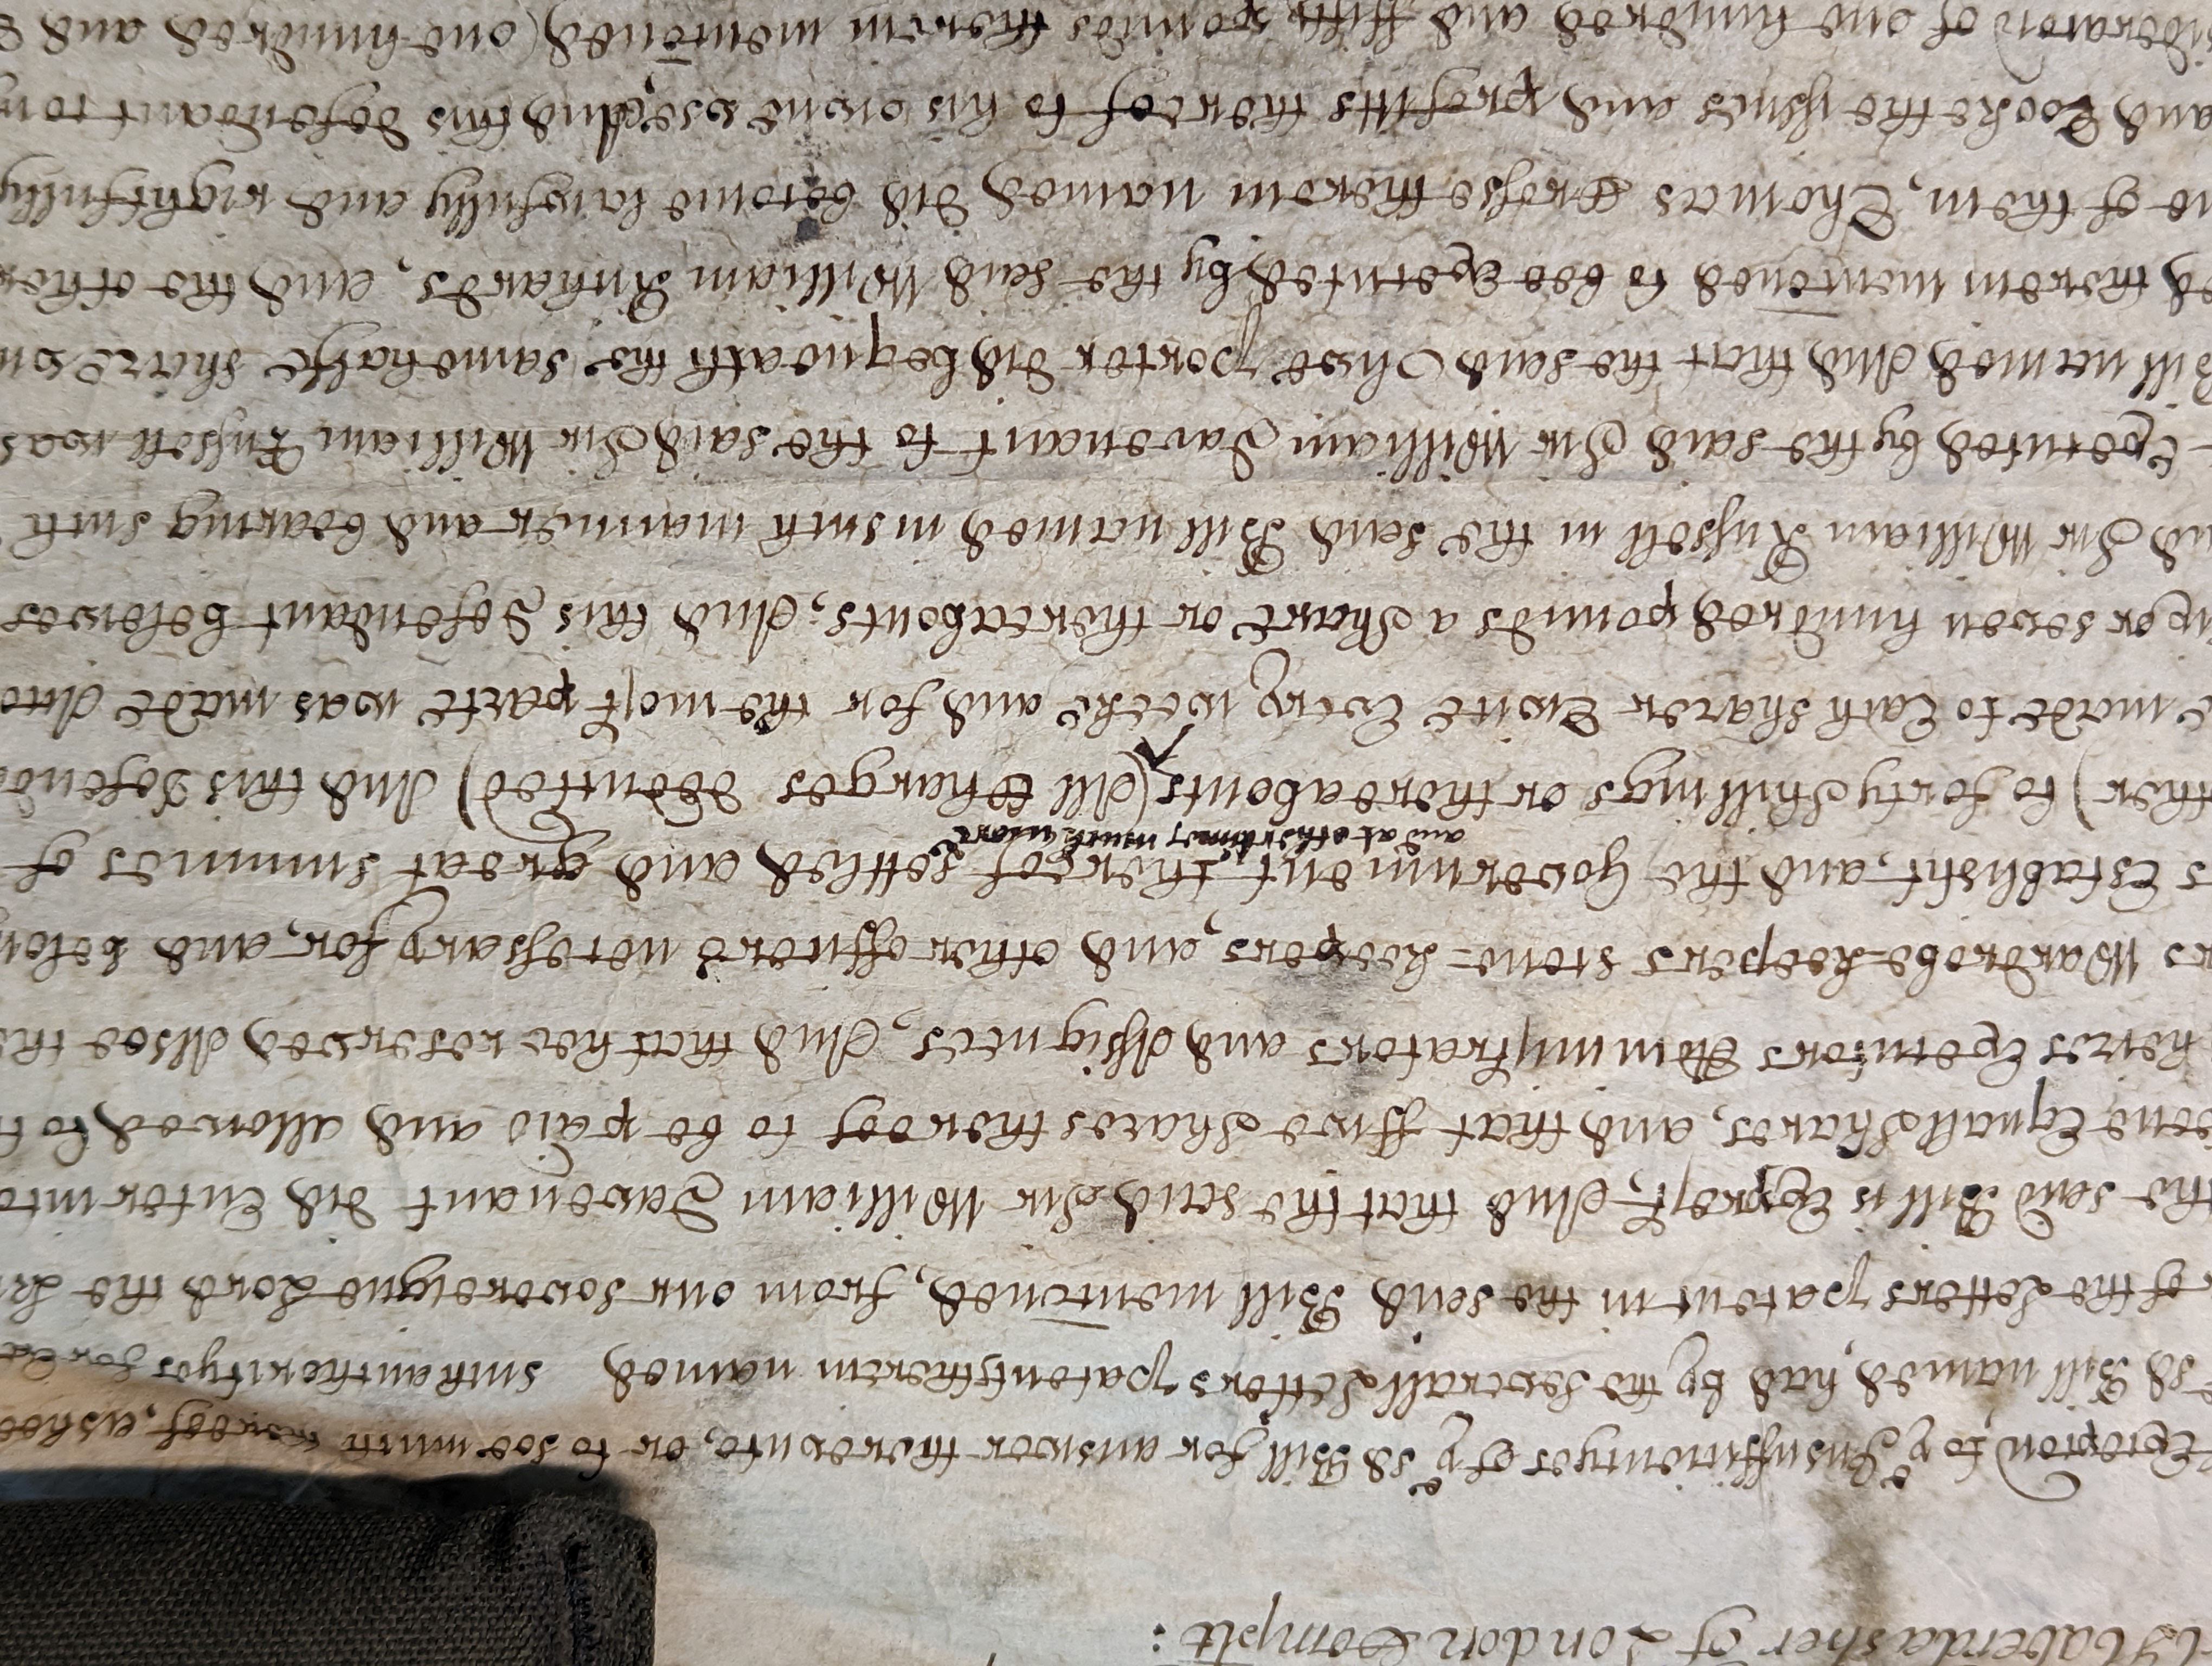 Haberdasher of London Complt:
Exception to ye Insufficientyes of ye sd Bill for answer thereunto, or to soe much thereof, as hee
sd Bill named, had by the severall Letters patents therein named such authorityes for
of the Letters patent in the said Bill mencioned, from our Sovereigne Lord the
the said Bill is Exprest, And that the said Sir William Davenant did Enter into
Equall shares, and that ffive shares thereof to be paid and allowed, to
heires Executors Administrators and Assignees, And that hee reserved Alsoe the
Wardrobe-keepers stone-keepers, and other officers necessary for, and
Establisht, and the Government thereof settled and great summes of
and at other times much more
) to forty shillings or thereabouts (All Charges deducted) And this
made to Each sharer Every weeke and for the most parte was made
or seven hundred pounds a share or thereabouts, And this Defendant beleives
Sir William Russell in the said Bill named in such manner and bearing such
Executed by the said Sir William Davenant to the said Sir William Russell was
Bill named And that the said Ouseporter did bequeath the same halfe share
therein mencioned to bee Executed by the said William Richards, and the other
of them, Thomas Crosse therein named did become lawfully and rightfully
and Tooke the yssues and profitts thereof to his owne use, And this defendant
of one hundred and ffifty pounds therein mencioned (one hundred and